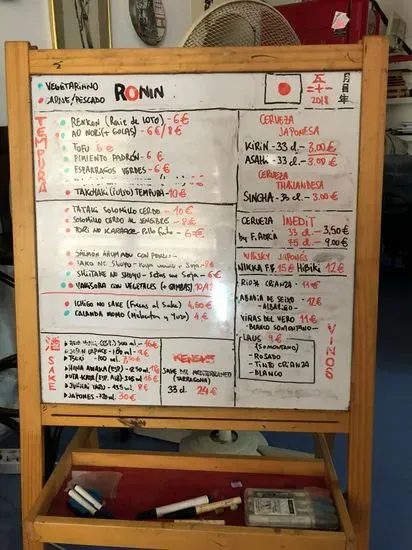 VEGETARIANO
CARNE/PESCADO
RONIN
五 二十一 2018 月 日 年
TEMPURA
RENKON (Raiz de LOTO) - 6 €
AO NORI (+ GOLAS) - 6€/8€
TOFU 6 €
PIMIENTO PADRÓN - 6 €
ESPÁRRAGOS VERDES - 6 €
TAKOYAKI (Pulpo) TEMPURA - 10 €
TATAKI SOLOMILLO CERDO - 10 €
SOLOMILLO CERDO AL JENGIBRE - 8 €
TORI NO KARAAGE Pollo frito - 6 €
SALMÓN AHUMADO CON
NO SHOYU - 8€
SHIITAKE NO SHOYU - Setas con Soja - 6 €
YAKISOBA CON VEGETALES (+ GAMBAS) 10/12
ICHIGO NO SAKE (Fresas al Sake) 4,60 €
CALANDA MOMO (Melocotón y Yuzu) 4 €
CERVEZA
JAPONESA
KIRIN - 33 cl. - 3.00 €
ASAHI - 33 cl. - 3.00 €
CERVEZA
THAILANDESA
SINGHA - 33 cl. - 3.00 €
CERVEZA INEDIT
by F. ADRIÁ 33 cl. - 3,50€
75 cl. - 9,00€
WHISKY JAPONÉS
NIKKA F.F. 15 € HIBIKI 12€
VINOS
RIOJA CRIANZA - 11€
ABADIA DE SEIXO - 12€
- ALBARIÑO
VIÑAS DEL VERO - 11€
- BLANCO SOMONTANO
LAUS 9€
(SOMONTANO)
- ROSADO
- TINTO CRIANZA
- BLANCO
酒 SAKE
HANA AWAKA (ESP.) - 250ml
JUNMAI TARU -
JAPONES - 720 ml 30 €
KENSHO
SAKE DEL MEDITERRANEO
(TARRAGONA)
33 cl. 24 €